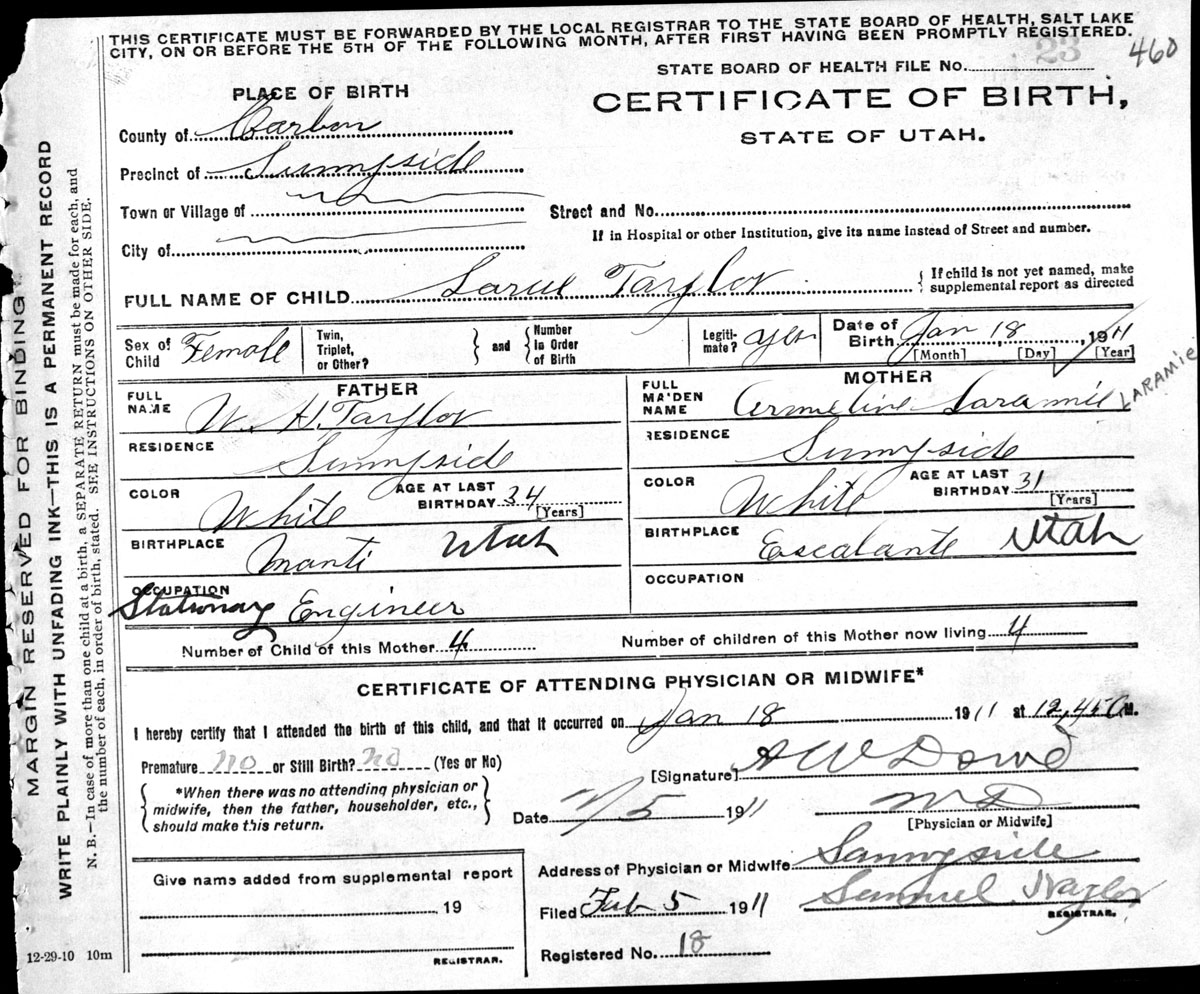 THIS CERTIFICATE MUST BE FORWARDED BY THE LOCAL REGISTRAR TO THE STATE BOARD OF HEALTH, SALT LAKE
CITY, ON OR BEFORE THE 5TH OF THE FOLLOWING MONTH, AFTER FIRST HAVING BEEN PROMPTLY REGISTERED.
460
STATE BOARD OF HEALTH FILE No. 23
PLACE OF BIRTH
CERTIFICATE OF BIRTH,
STATE OF UTAH.
County of Carbon
Precinct of Sunnyside
Town or Village of
Street and No.
If in Hospital or other Institution, give its name instead of Street and number.
City of
FULL NAME OF CHILD Larue Taylor
If child is not yet named, make
supplemental report as directed
Sex of Child Female
Twin, Triplet, or Other?
and
Number in Order of Birth
Legiti-mate? yes
Date of Birth Jan 18, 1911
[Month] [Day] [Year]
FATHER
FULL NAME W. H. Taylor
RESIDENCE Sunnyside
COLOR White
AGE AT LAST BIRTHDAY 34
[Years]
BIRTHPLACE Manti Utah
OCCUPATION
Stationary Engineer
MOTHER
FULL MAIDEN NAME Armeline Laramie LARAMIE
RESIDENCE Sunnyside
COLOR White
AGE AT LAST BIRTHDAY 31
[Years]
BIRTHPLACE Escalante Utah
OCCUPATION
Number of Child of this Mother 4
Number of children of this Mother now living 4
CERTIFICATE OF ATTENDING PHYSICIAN OR MIDWIFE*
I hereby certify that I attended the birth of this child, and that it occurred on Jan 18 1911 at 12,45 A M.
Premature no or Still Birth? no (Yes or No)
*When there was no attending physician or
midwife, then the father, householder, etc.,
should make this return.
[Signature] A W Dowd
Date 2/5 1911
M D
[Physician or Midwife]
Give name added from supplemental report
19
REGISTRAR.
Address of Physician or Midwife Sunnyside
Filed Feb 5 1911
Samuel Naylor
REGISTRAR.
Registered No. 18
12-29-10 10m
MARGIN RESERVED FOR BINDING
WRITE PLAINLY WITH UNFADING INK—THIS IS A PERMANENT RECORD
N. B.—In case of more than one child at a birth, a SEPARATE RETURN must be made for each, and
the number of each, in order of birth, stated. SEE INSTRUCTIONS ON OTHER SIDE.